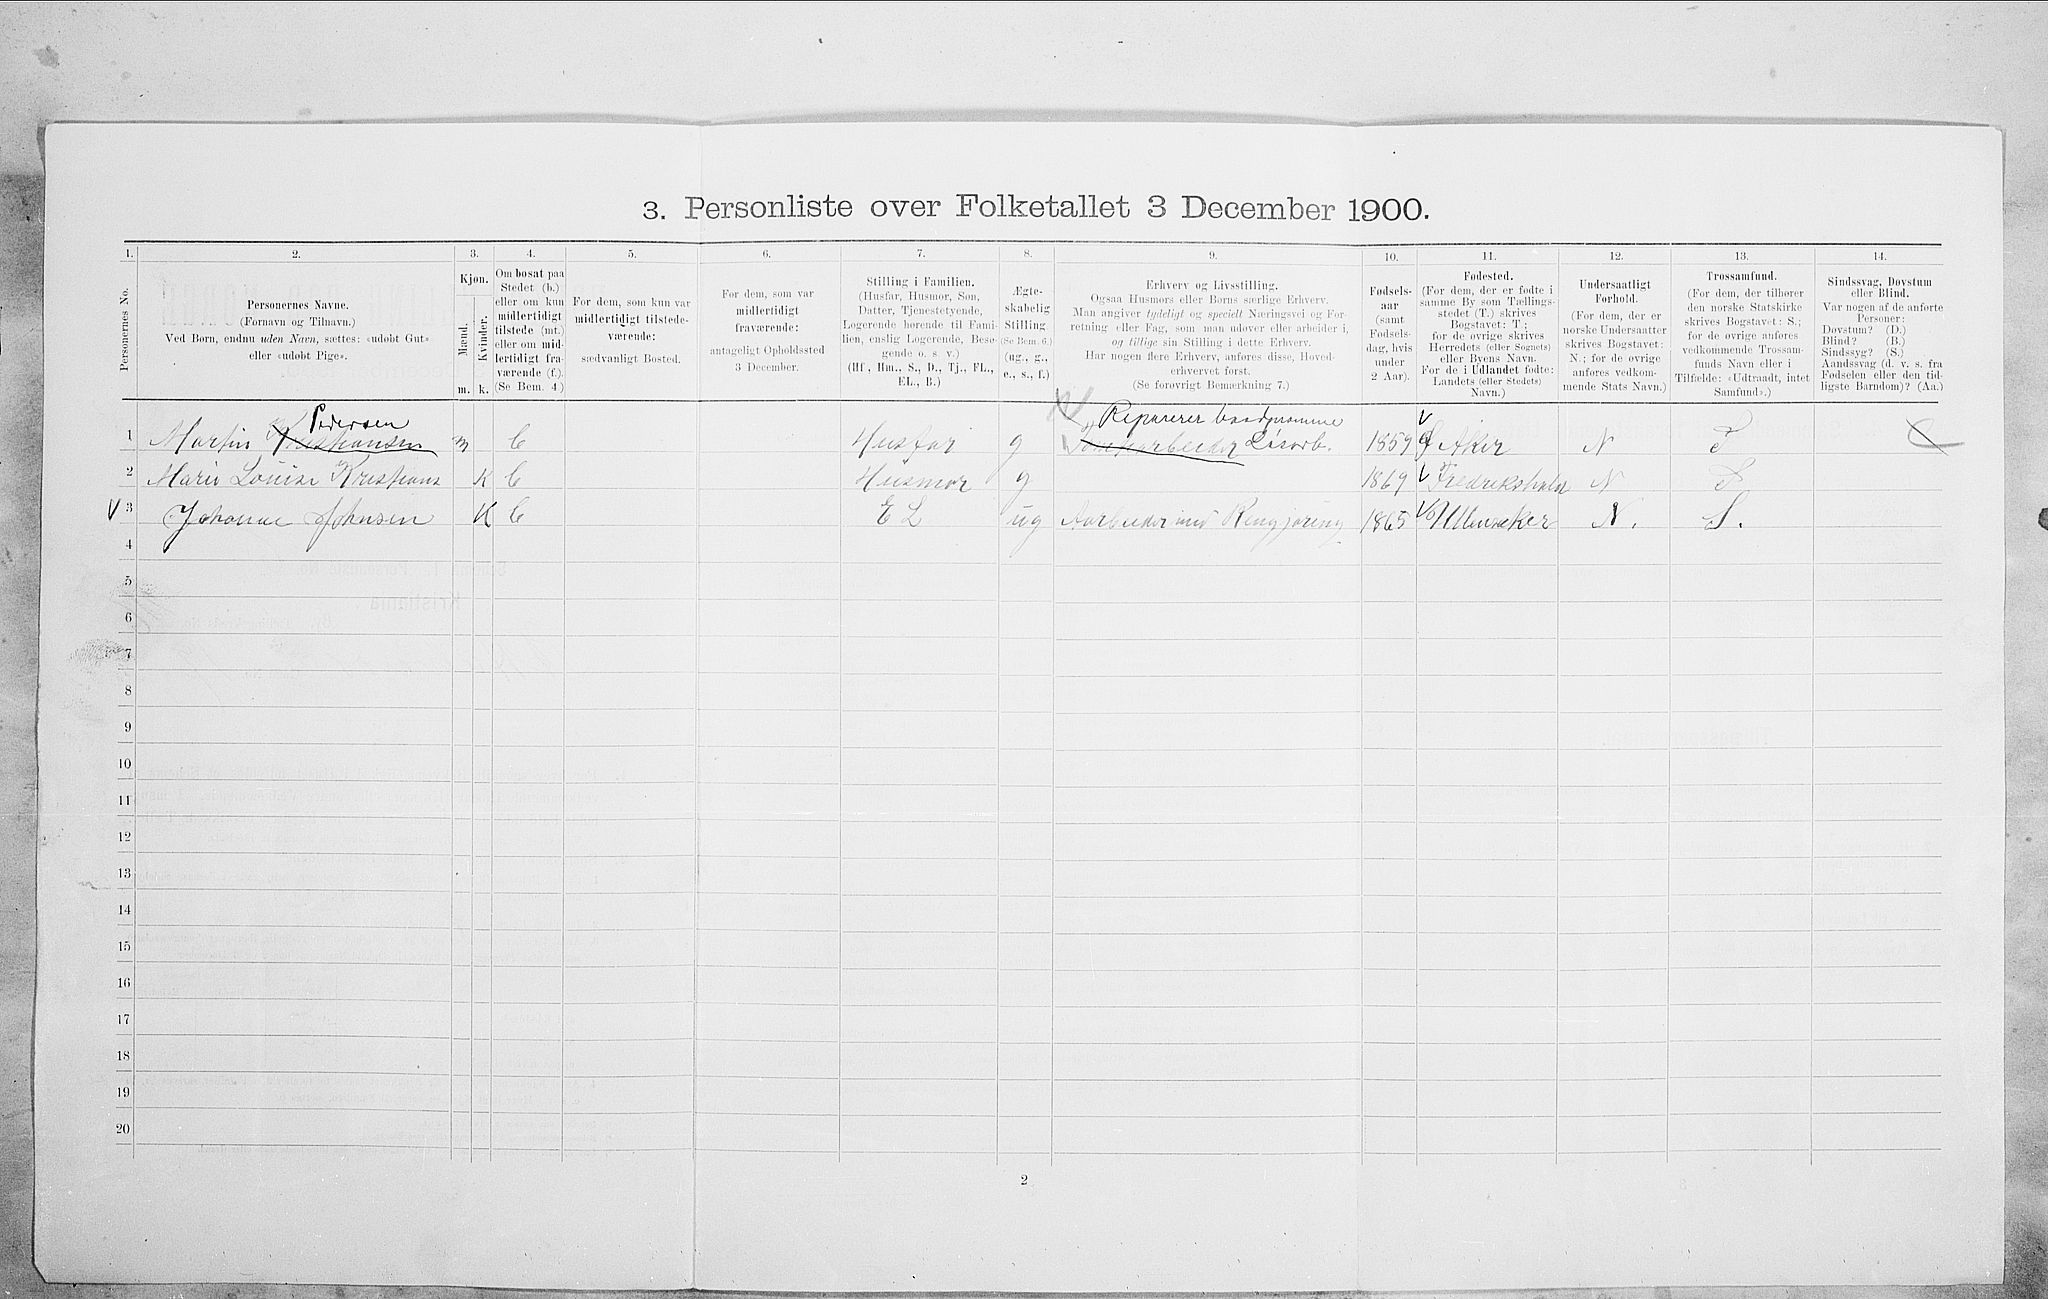 3. Personliste over Folketallet 3 December 1900.
1. 2. 3. 4. 5. 6. 7. 8. 9. 10. 11. 12. 13. 14.
Personernes No.
Personernes Navne.
(Fornavn og Tilnavn.)
Ved Børn, endnu uden Navn, sættes: «udøbt Gut»
eller «udøbt Pige».
Kjøn.
Mænd.
Kvinder.
m. k.
Om bosat paa
Stedet (b.)
eller om kun
midlertidigt
tilstede (mt.)
eller om mid-
lertidigt fra-
værende (f.).
(Se Bem. 4.)
For dem, som kun var
midlertidigt tilstede-
værende:
sædvanligt Bosted.
For dem, som var
midlertidigt
fraværende:
antageligt Opholdssted
3 December.
Stilling i Familien.
(Husfar, Husmor, Søn,
Datter, Tjenestetyende,
Logerende hørende til Fami-
lien, enslig Logerende, Besø-
gende o. s. v.)
(Hf., Hm., S., D., Tj., FL.,
EL., B.)
Ægte-
skabelig
Stilling.
(Se Bem. 6.)
(ug., g.,
e., s., f.)
Erhverv og Livsstilling.
Ogsaa Husmors eller Børns særlige Erhverv.
Man angiver tydeligt og specielt Næringsvei og For-
retning eller Fag, som man udøver eller arbeider i,
og tillige sin Stilling i dette Erhverv.
Har nogen flere Erhverv, anføres disse, Hoved-
erhvervet først.
(Se forøvrigt Bemærkning 7.)
Fødsels-
aar
(samt
Fødsels-
dag, hvis
under
2 Aar).
Fødested.
(For dem, der er fødte i
samme By som Tællings-
stedet (T.) skrives
Bogstavet: T.;
for de øvrige skrives
Herredets (eller Sognets)
eller Byens Navn.
For de i Udlandet fødte:
Landets (eller Stedets)
Navn.)
Undersaatligt
Forhold.
(For dem, der er
norske Undersaatter
skrives Bogstavet:
N.; for de øvrige
anføres vedkom-
mende Stats Navn.)
Trossamfund.
(For dem, der tilhører
den norske Statskirke
skrives Bogstavet: S.;
for de øvrige anføres
vedkommende Trossam-
funds Navn eller i
Tilfælde: «Udtraadt, intet
Samfund».)
Sindssvag, Døvstum
eller Blind.
Var nogen af de anførte
Personer:
Døvstum? (D.)
Blind? (B.)
Sindssyg? (S.)
Aandssvag (d. v. s. fra
Fødselen eller den tid-
ligste Barndom)? (Aa.)
Pedersen Reparerer
1 Martin Kristiansen m b Husfar g Løsarb. 1859 Aker N S
2 Marie Louise Kristians K b Husmor g 1869 Fredrikshald N S
3 Johanne Johnsen K b E L ug Arbeider ved Rengjøring 1865 Ullensaker N. S.
4
5
6
7
8
9
10
11
12
13
14
15
16
17
18
19
20
2